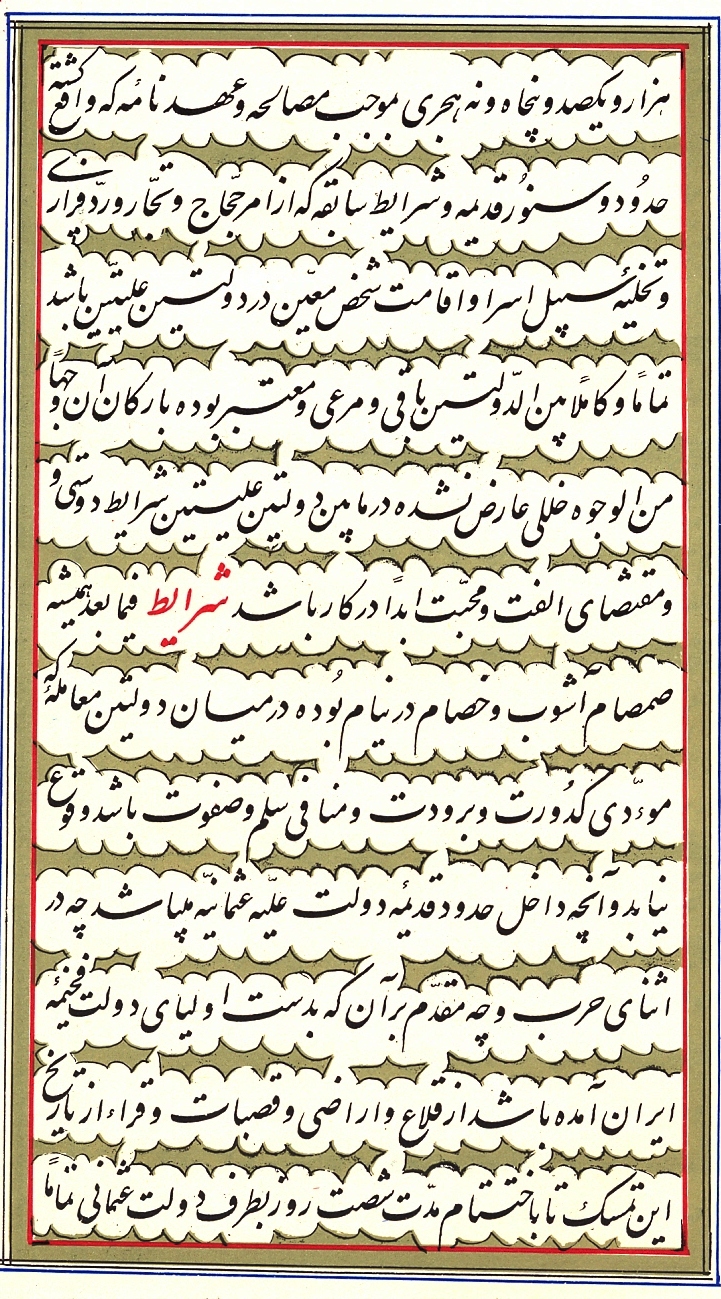 هزار و یکصد و پنجاه و نه هجری بموجب مصالحه و عهدنامه که واقع گشته
حدود و سنور قدیمه و شرایط سابقه که از امر حجاج و تجار و رد فراری
و تخلیهٔ سبیل اسرا و اقامت شخص معیّن در دولتین علیتین باشد
تماماً و کاملاً بین الدّولتین باقی و مرعی و معتبر بوده بارکان آن وجهاً
من الوجوه خللی عارض نشده در مابین دولتین علیتین شرایط دوستی و
و مقتضای الفت و محبّت ابداً در کار باشد شرایط فیما بعد همیشه
صمصام آشوب و خصام در نیام بُوده در میان دولتین معاملهٔ که
موءدّی کدُورت و برودت و منافی سلم و صفوت باشد وقوع
نیابد و آنچه داخل حدود قدیمهٔ دولت علیّه عثمانیّه میباشد چه در
اثنای حرب و چه مقدّم بر آن که بدست اولیای دولت فخیمهٔ
ایران آمده باشد از قلاع و اراضی و قصبات و قراء از تاریخ
این تمسک تا باختتام مدّت شصت روز بطرف دولت عثمانی تماماً